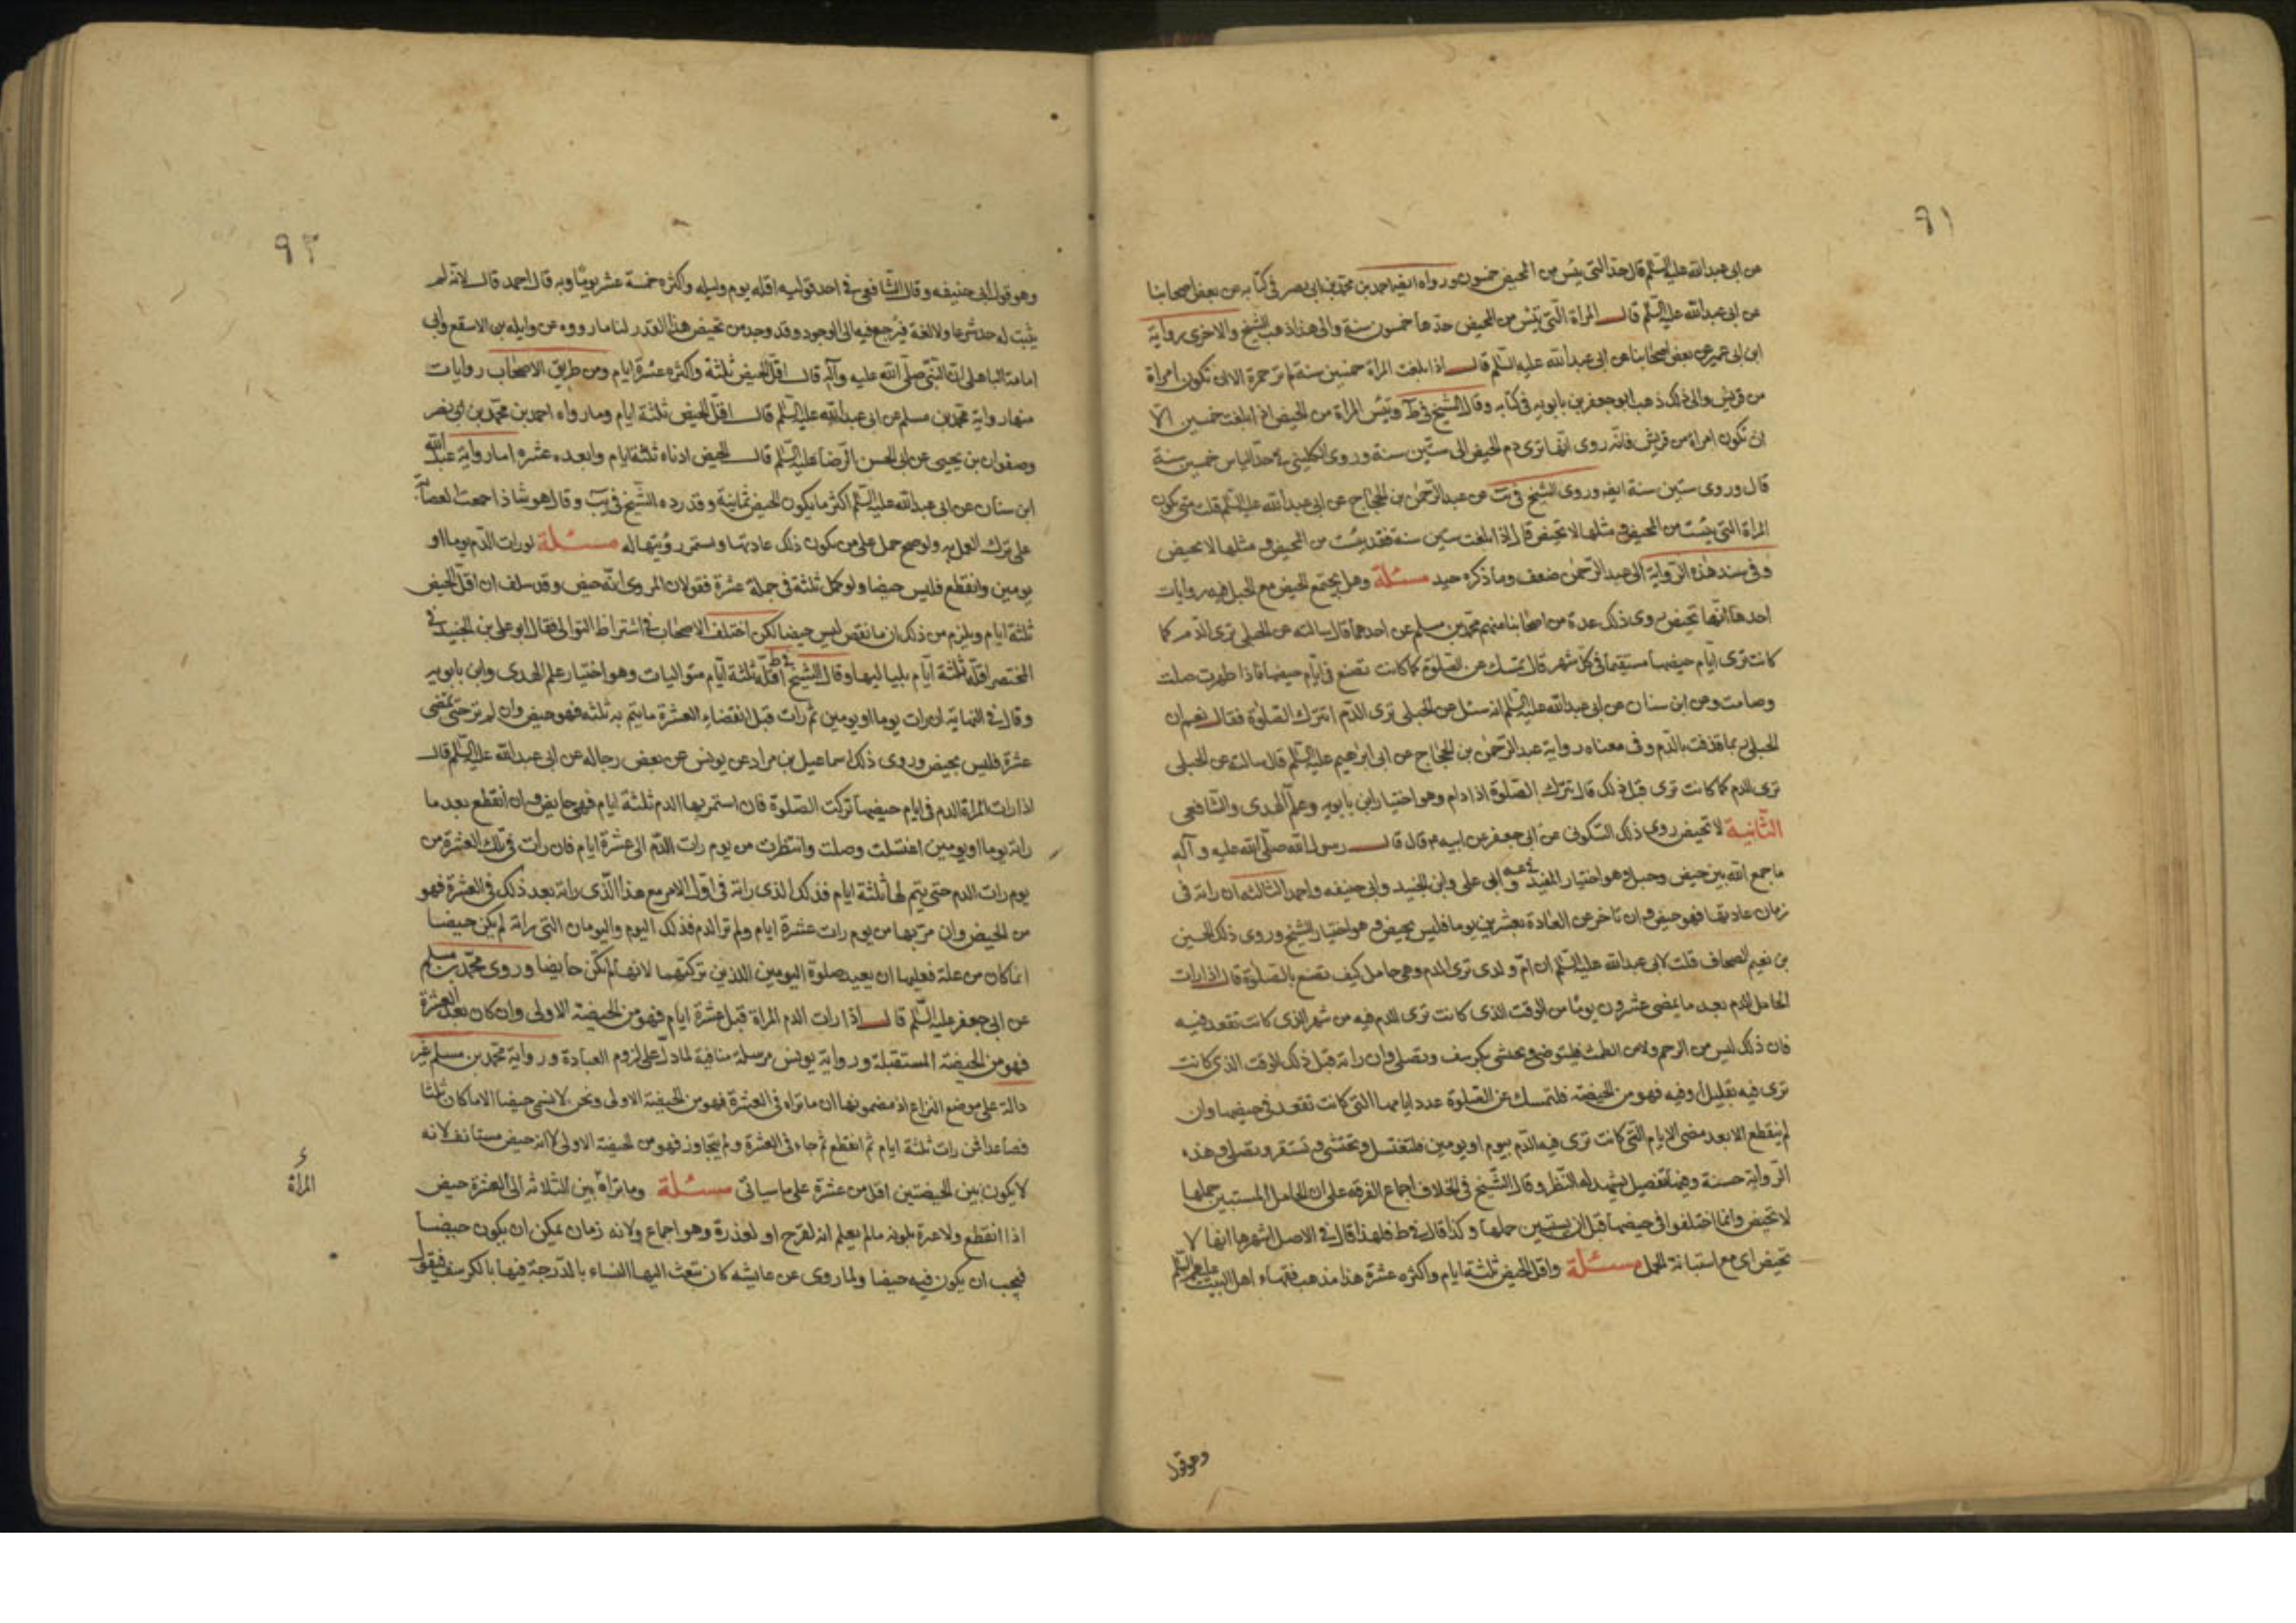 ٩١
عن ابى عبدالله عليه السلم قال حد التى يئس من المحيض خمسون ورواه ايضا احمد بن محمد بن ابى نصر فى كتابه عن بعض اصحابنا
عن ابى عبدالله عليه السلم قال المراة التى تيئس من المحيض حدها خمسون سنة والى هذا ذهب الشيخ والاخرى رواية
ابن ابى عمير عن بعض اصحابنا عن ابى عبدالله عليه السلم قال اذا بلغت المراة خمسين سنة لم تر حمرة الا ان تكون امراة
من قريش والى ذلك ذهب ابو جعفر بن بابويه فى كتابه وقال الشيخ فى ط وتيئس المراة من الحيض اذا بلغت خمسين الا
ان تكون امراة من قريش فانه روى انها ترى دم الحيض الى ستين سنة وروى الكلينى فى حد الياس خمسين سنة
قال وروى ستين سنة ايضا وروى الشيخ فى يب عن عبد الرحمن بن الحجاج عن ابى عبدالله عليه السلم قلت متى تكون
المراة التى يئست من المحيض و مثلها لا تحيض قال اذا بلغت ستين سنة فقد يئست من المحيض و مثلها لا تحيض
وفى سند هذه الرواية الى عبد الرحمن ضعف وما ذكره جيد مسئلة وهل يجتمع الحيض مع الحبل فيه روايات
احدها انها تحيض روى ذلك عدة من اصحابنا منهم محمد بن مسلم عن احدهما قال سالته عن الحبلى ترى الدم كما
كانت ترى ايام حيضها مستقيما فى كل شهر قال تمسك عن الصلوة كما كانت تصنع فى ايام حيضها فاذا طهرت صلت
وصامت وعن ابن سنان عن ابى عبدالله عليه السلم انه سئل عن الحبلى ترى الدم اتترك الصلوة فقال نعم ان
الحبلى ربما قذفت بالدم وفى معناه رواية عبد الرحمن بن الحجاج عن ابى ابرهيم عليه السلم قال سالته عن الحبلى
ترى الدم كما كانت ترى قبل ذلك قال تترك الصلوة اذا دام وهو اختيار ابن بابويه وعلم الهدى والشافعى
الثانية لا تحيض روى ذلك السكونى عن ابى جعفر عن ابيه م قال قال رسول الله صلى الله عليه وآله
ما جمع الله بين حيض وحبل وهو اختيار المفيد و ابى على وابن الجنيد وابى حنيفه واحمد الثالثه ان راته فى
زمان عادتها فهو حيض وان تاخر عن العادة بعشرين يوما فليس بحيض و هو اختيار الشيخ وروى ذلك الحسين
بن نعيم الصحاف قلت لابى عبدالله عليه السلم ان ام ولدى ترى الدم وهى حامل كيف تصنع بالصلوة قال اذا رات
الحامل الدم بعد ما يمضى عشرون يوما من الوقت الذى كانت ترى الدم فيه من شهر الذى كانت تقعد فيه
فان ذلك ليس من الرحم ولا من الطمث فلتتوضى وتحتشى بكرسف وتصلى وان راته قبل ذلك الوقت الذى كانت
ترى فيه بقليل او فيه فهو من الحيضة فلتمسك عن الصلوة عدد ايامها التى كانت تقعد فى حيضها وان
لم ينقطع الا بعد مضى الايام التى كانت ترى فيه الدم بيوم او يومين فلتغتسل وتحتشى و تستثفر وتصلى وهذه
الرواية حسنة وفيها تفصيل يشهد له النظر وقال الشيخ فى الخلاف اجماع الفرقه على ان الحامل المستبين حملها
لا تحيض وانما اختلفوا فى حيضها قبل ان يستبين حملها وكذا قال فى ط فلهذا قال فى الاصل اشهرها انها لا
تحيض اى مع استبانة الحمل مسئلة واقل الحيض ثلثة ايام واكثره عشرة هذا مذهب فقهاء اهل البيت عليهم السلم
وهو قول
٩٢
وهو قول ابى حنيفه وقال الشافعى فى احد قوليه اقله يوم وليله واكثره خمسة عشر يوما وبه قال احمد قال لانه لم
يثبت له حد شرعا ولا لغة فيرجع فيه الى الوجود وقد وجد من تحيض هذا القدر لنا ما رووه عن واثله بن الاسقع وابى
امامة الباهلى ان النبى صلى الله عليه وآله قال اقل الحيض ثلثة واكثره عشرة ايام ومن طريق الاصحاب روايات
منها رواية محمد بن مسلم عن ابى عبدالله عليه السلم قال اقل الحيض ثلثة ايام وما رواه احمد بن محمد بن ابى نصر
وصفوان بن يحيى عن ابى الحسن الرضا عليه السلم قال الحيض ادناه ثلثة ايام وابعده عشره اما رواية عبدالله
ابن سنان عن ابى عبدالله عليه السلم اكثر ما يكون الحيض ثمانية وقد رده الشيخ فى يب وقال هو شاذ اجمعت العصابه
على ترك العمل به ولو صح حمل على من يكون ذلك عادتها واستمر رؤيتها له مسئلة لو رات الدم يوما او
يومين وانقطع فليس حيضا ولو كمل ثلثة فى جملة عشرة فقولان المروى انه حيض وقد سلف ان اقل الحيض
ثلثة ايام ويلزم من ذلك ان ما نقص ليس حيضا لكن اختلف الاصحاب فى اشتراط التوالى فقال ابو على بن الجنيد فى
المختصر اقله ثلثة ايام بلياليها وقال الشيخ فى ط اقله ثلثة ايام متواليات وهو اختيار علم الهدى وابن بابويه
وقال فى النهاية ان رات يوما او يومين ثم رات قبل انقضاء العشرة ما يتم به ثلثه فهو حيض وان لم تر حتى تمضى
عشرة فليس بحيض وروى ذلك اسماعيل بن مراد عن يونس عن بعض رجاله عن ابى عبدالله عليه السلم قال
اذا رات المراة الدم فى ايام حيضها تركت الصلوة فان استمر بها الدم ثلثة ايام فهى حايض و ان انقطع بعد ما
راته يوما او يومين اغتسلت وصلت وانتظرت من يوم رات الدم الى عشرة ايام فان رات فى تلك العشرة من
يوم رات الدم حتى يتم لها ثلثة ايام فذلك الذى راته فى اول الامر مع هذا الذى راته بعد ذلك فى العشرة فهو
من الحيض وان مر بها من يوم رات عشرة ايام ولم تر الدم فذلك اليوم واليومان التى راته لم يكن حيضا
انما كان من علة فعليها ان يعيد صلوة اليومين اللذين تركتهما لانها لم تكن حايضا وروى محمد بن مسلم
عن ابى جعفر عليه السلم قال اذا رات الدم المراة قبل عشرة ايام فهو من الحيضة الاولى وان كان بعد العشرة
فهو من الحيضة المستقبلة ورواية يونس مرسلة منافية لما دل على لزوم العبادة ورواية محمد بن مسلم غير
دالة على موضع النزاع اذ مضمونها ان ما تراه فى العشرة فهو من الحيضة الاولى ونحن لا نسمى حيضا الا ما كان ثلثا
فصاعدا فمن رات ثلثة ايام ثم انقطع ثم جاء فى العشرة ولم يتجاوز فهو من الحيضة الاولى لا انه حيض مستانف لانه
لا يكون بين الحيضتين اقل من عشرة على ما سياتى مسئلة وما تراه بين الثلاثه الى العشرة حيض
المراة
اذا انقطع ولا عبرة بلونه ما لم يعلم انه لقرح او لعذرة وهو اجماع ولانه زمان يمكن ان يكون حيضا
فيجب ان يكون فيه حيضا ولما روى عن عايشه كان تبعث اليها النساء بالدرجة فيها بالكرسف فيقول